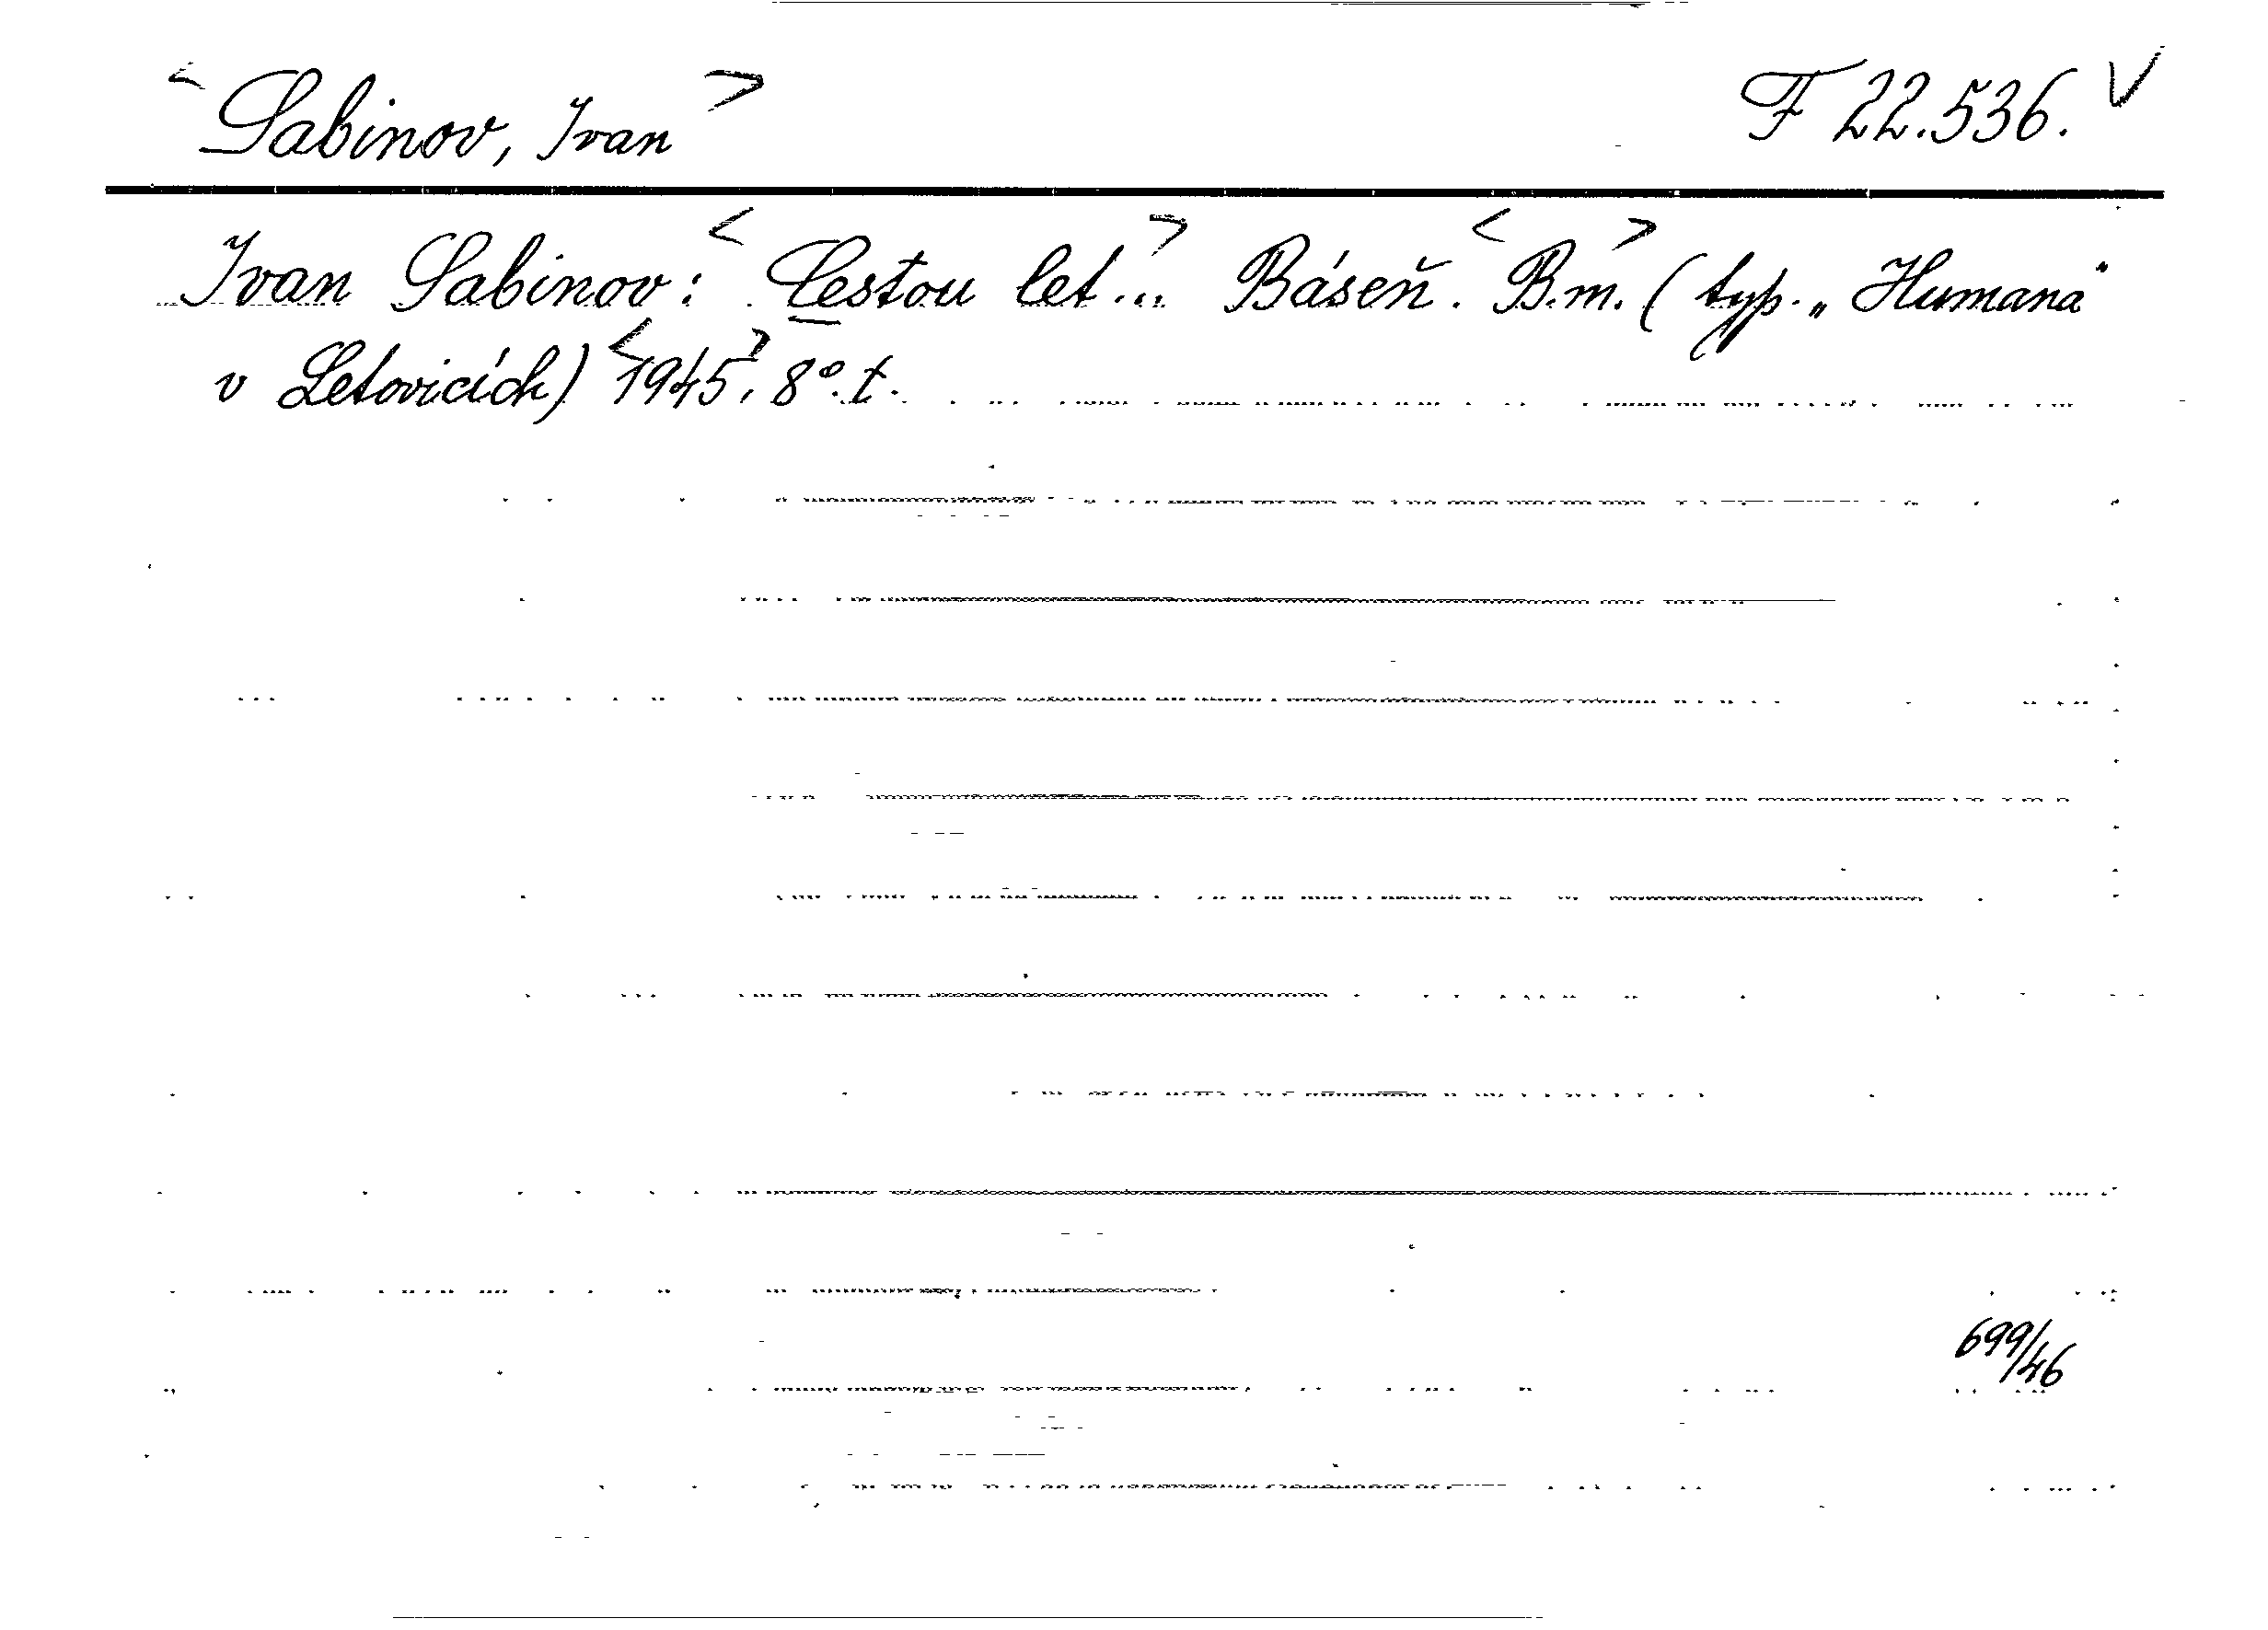 <Sabinov, Ivan> F 22.536. V
Ivan Sabinov: <Cestou let...> Báseň. <B.m.> (typ. „Humana“
v Letovicích) <1945>, 8°. t.
699/46